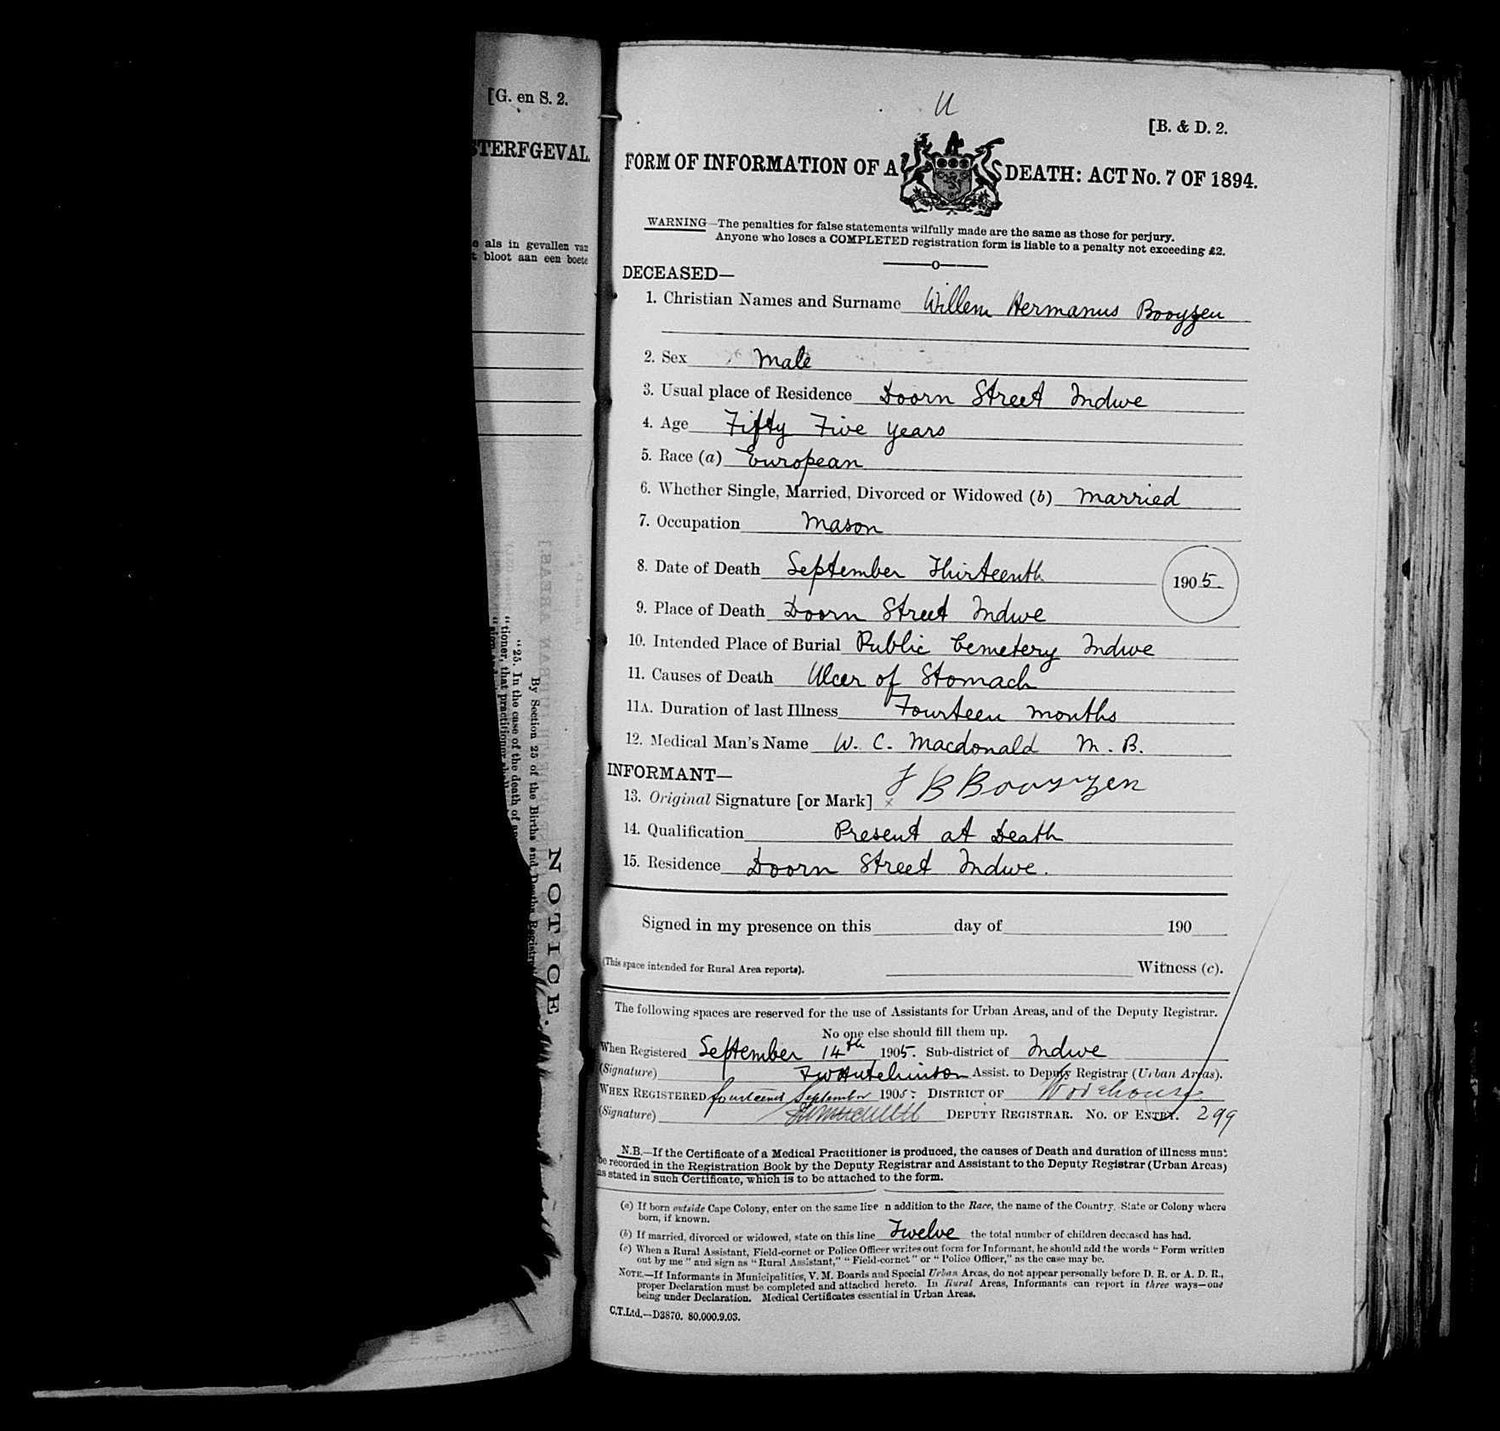 [G. en S. 2.
STERFGEVAL.
als in gevallen van
bloot aan een boete
NOTICE.
By Section 25 of the Births and Deaths
"25. In the case of the death of
"tioner, that practitioner
U
[B. & D. 2.
FORM OF INFORMATION OF A DEATH: ACT No. 7 OF 1894.
WARNING—The penalties for false statements wilfully made are the same as those for perjury.
Anyone who loses a COMPLETED registration form is liable to a penalty not exceeding £2.
DECEASED—
1. Christian Names and Surname Willem Hermanus Booyzen
2. Sex Male
3. Usual place of Residence Doorn Street Indwe
4. Age Fifty Five years
5. Race (a) European
6. Whether Single, Married, Divorced or Widowed (b) Married
7. Occupation Mason
8. Date of Death September Thirteenth 1905
9. Place of Death Doorn Street Indwe
10. Intended Place of Burial Public Cemetery Indwe
11. Causes of Death Ulcer of Stomach
11A. Duration of last Illness Fourteen months
12. Medical Man's Name W. C. Macdonald M. B.
INFORMANT—
13. Original Signature [or Mark] x J B Booyzen
14. Qualification Present at Death
15. Residence Doorn Street Indwe.
Signed in my presence on this day of 190
(This space intended for Rural Area reports). Witness (c).
The following spaces are reserved for the use of Assistants for Urban Areas, and of the Deputy Registrar.
No one else should fill them up.
When Registered September 14th 1905. Sub-district of Indwe
(Signature) FW Hutchinson Assist. to Deputy Registrar (Urban Areas).
WHEN REGISTERED fourteenth September 1905. DISTRICT OF Wodehouse
(Signature) DEPUTY REGISTRAR. NO. OF ENTRY. 299
N.B.—If the Certificate of a Medical Practitioner is produced, the causes of Death and duration of illness must
be recorded in the Registration Book by the Deputy Registrar and Assistant to the Deputy Registrar (Urban Areas)
as stated in such Certificate, which is to be attached to the form.
(a) If born outside Cape Colony, enter on the same line n addition to the Race, the name of the Country, State or Colony where
born, if known.
(b) If married, divorced or widowed, state on this line Twelve the total number of children deceased has had.
(c) When a Rural Assistant, Field-cornet or Police Officer writes out form for Informant, he should add the words "Form written
out by me" and sign as "Rural Assistant," "Field-cornet" or "Police Officer," as the case may be.
NOTE.—If Informants in Municipalities, V. M. Boards and Special Urban Areas, do not appear personally before D. R. or A. D. R.,
proper Declaration must be completed and attached hereto. In Rural Areas, Informants can report in three ways—one
being under Declaration. Medical Certificates essential in Urban Areas.
C.T.Ltd.—D3870. 80,000.9.03.